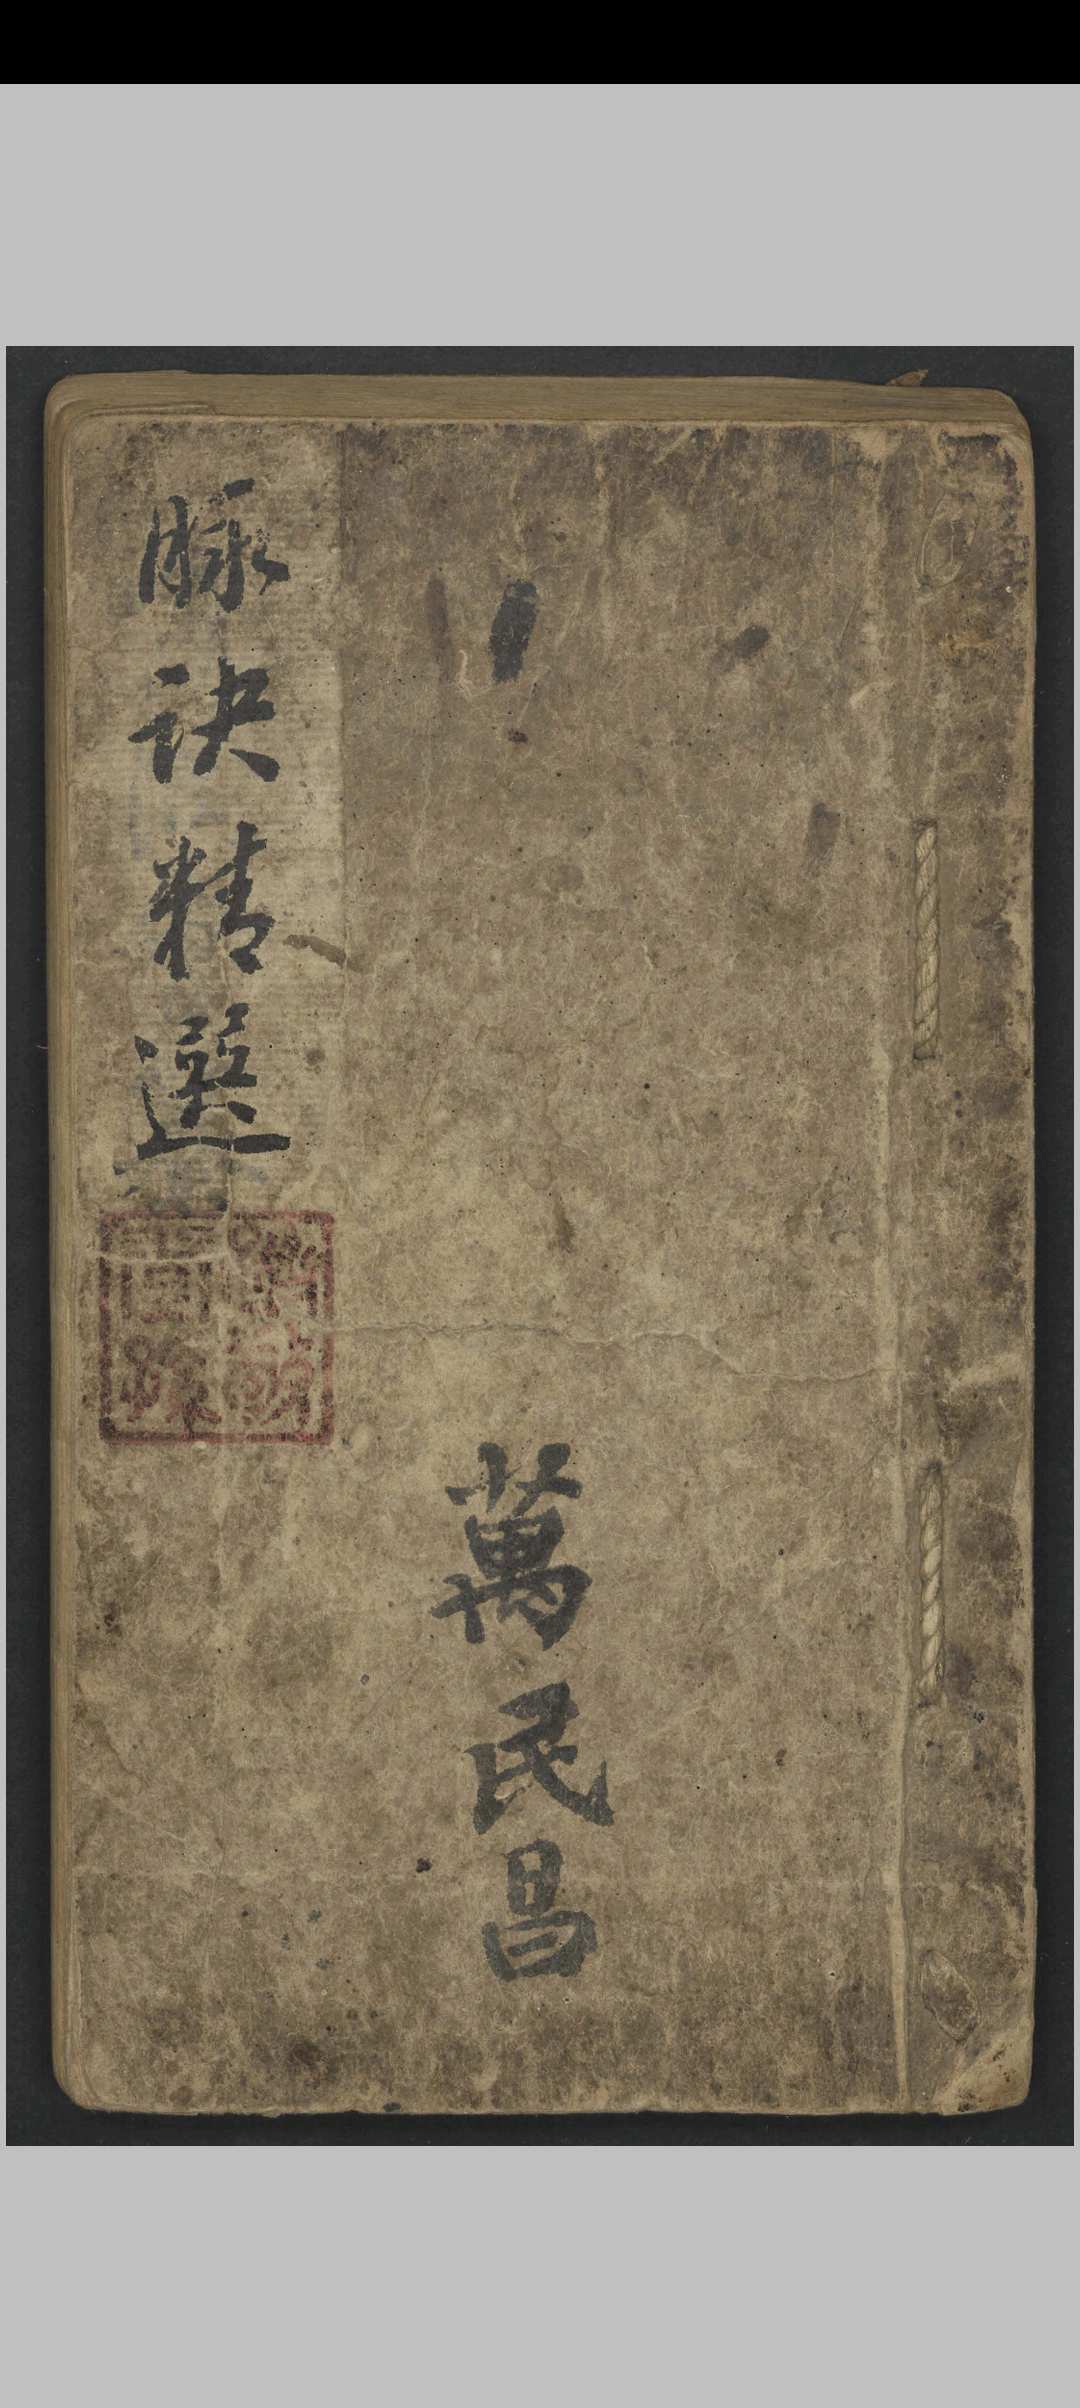 脉訣精選
萬民昌